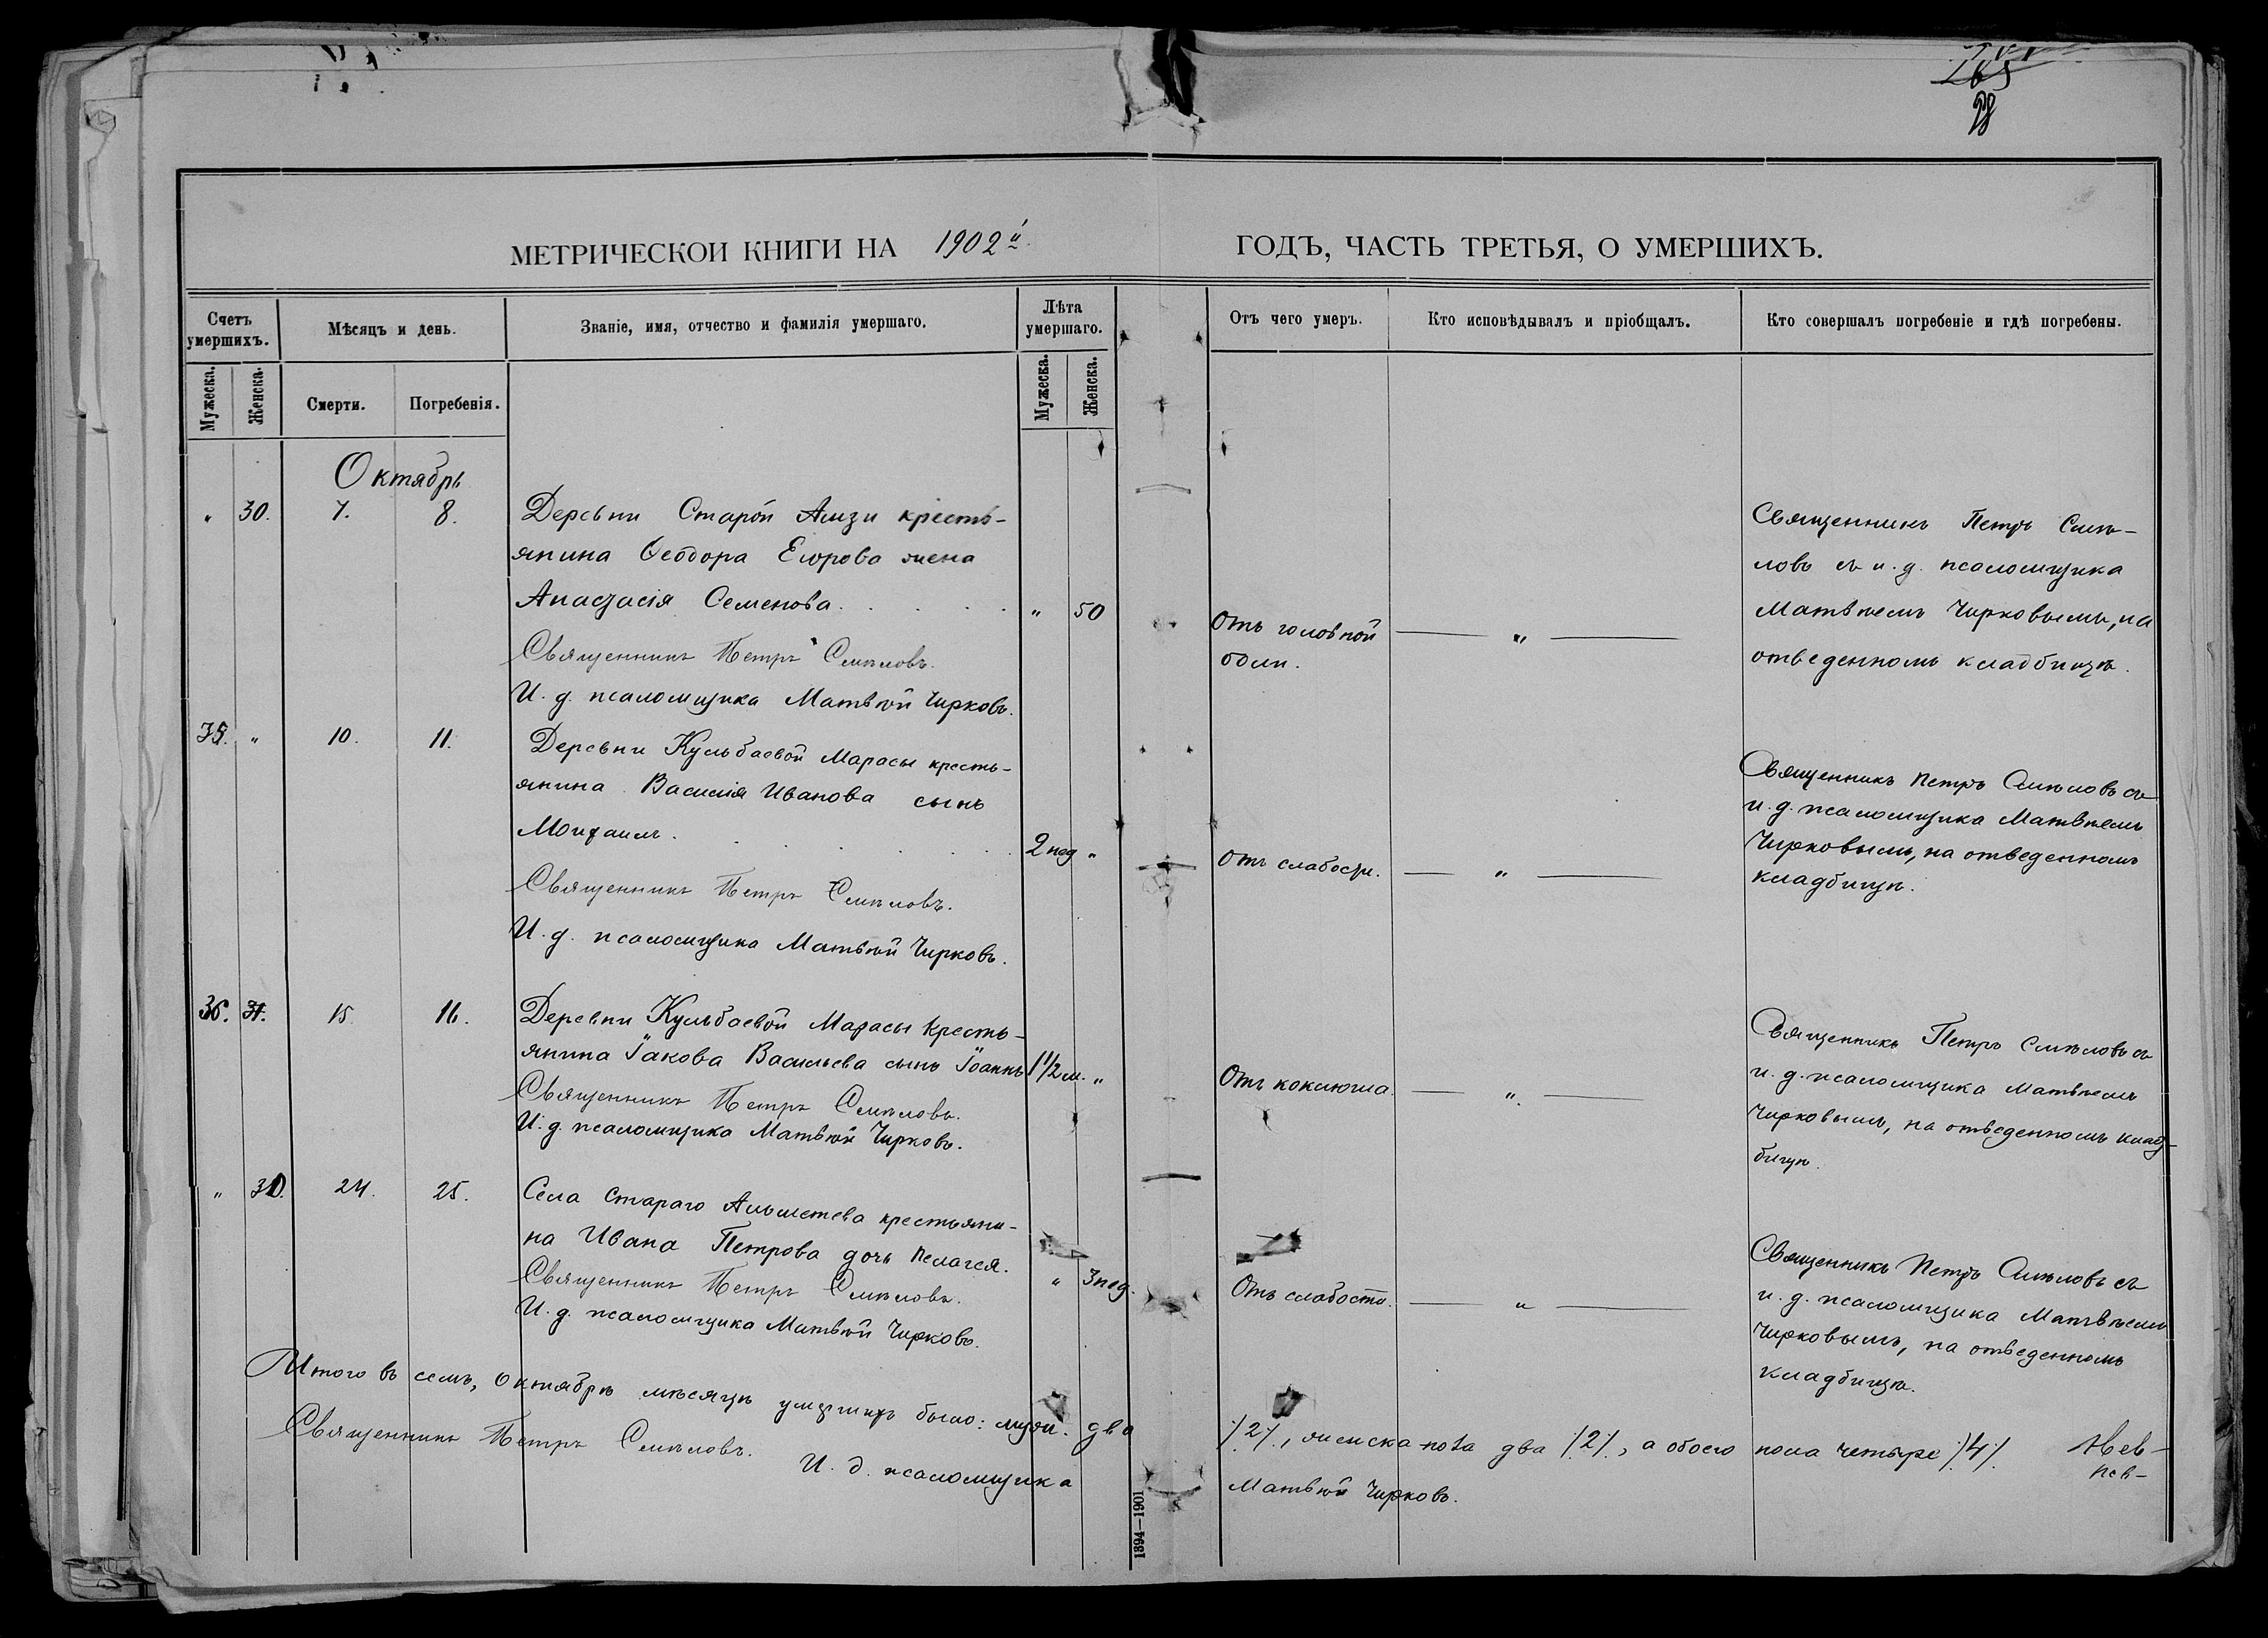 265
98
МЕТРИЧЕСКОЙ КНИГИ НА 1902й ГОДЪ, ЧАСТЬ ТРЕТЬЯ, О УМЕРШИХЪ.
Счетъ умершихъ.
Мѣсяцъ и день.
Званіе, имя, отчество и фамилія умершаго.
Лѣта умершаго.
Отъ чего умеръ.
Кто исповѣдывалъ и пріобщалъ.
Кто совершалъ погребеніе и гдѣ погребены.
Мужеска.
Женска.
Смерти.
Погребенія.
Мужеска.
Женска.
Октябрь
" 30. 7. 8.
Деревни Старой Амзи кресть-
янина Ѳеодора Егорова жена
Анастасія Семенова. " 50
Священникъ Петръ Смѣловъ.
И. д. псаломщика Матвѣй Чирковъ.
Отъ головной
боли. "
Священникъ Петръ Смѣ-
ловъ съ и. д. псаломщика
Матвѣемъ Чирковымъ, на
отведенномъ кладбищѣ.
35. " 10. 11.
Деревни Кульбаевой Марасы кресть-
янина Василія Иванова сынъ
Михаилъ. 2 нед "
Священникъ Петръ Смѣловъ.
И. д. псаломщика Матвѣй Чирковъ.
Отъ слабости. "
Священникъ Петръ Смѣловъ съ
и. д. псаломщика Матвѣемъ
Чирковымъ, на отведенномъ
кладбищѣ.
36. 31. 15. 16.
Деревни Кульбаевой Марасы кресть-
янина Іакова Васильева сынъ Іоаннъ 1 1/2 м. "
Священникъ Петръ Смѣловъ.
И. д. псаломщика Матвѣй Чирковъ.
Отъ коклюша. "
Священникъ Петръ Смѣловъ съ
и. д. псаломщика Матвѣемъ
Чирковымъ, на отведенномъ клад-
бищѣ.
" 31. 24. 25.
Села Стараго Альметева крестьяни-
на Ивана Петрова дочь Пелагея.
" 3 нед.
Священникъ Петръ Смѣловъ.
И. д. псаломщика Матвѣй Чирковъ.
Отъ слабости. "
Священникъ Петръ Смѣловъ съ
и. д. псаломщика Матвѣемъ
Чирковымъ, на отведенномъ
кладбищѣ.
Итого въ семъ, Октябрѣ мѣсяцѣ умершихъ было: муж. два /2/, женска пола два /2/, а обоего пола четыре /4/
Священникъ Петръ Смѣловъ.
И. д. псаломщика Матвѣй Чирковъ.
1894—1901